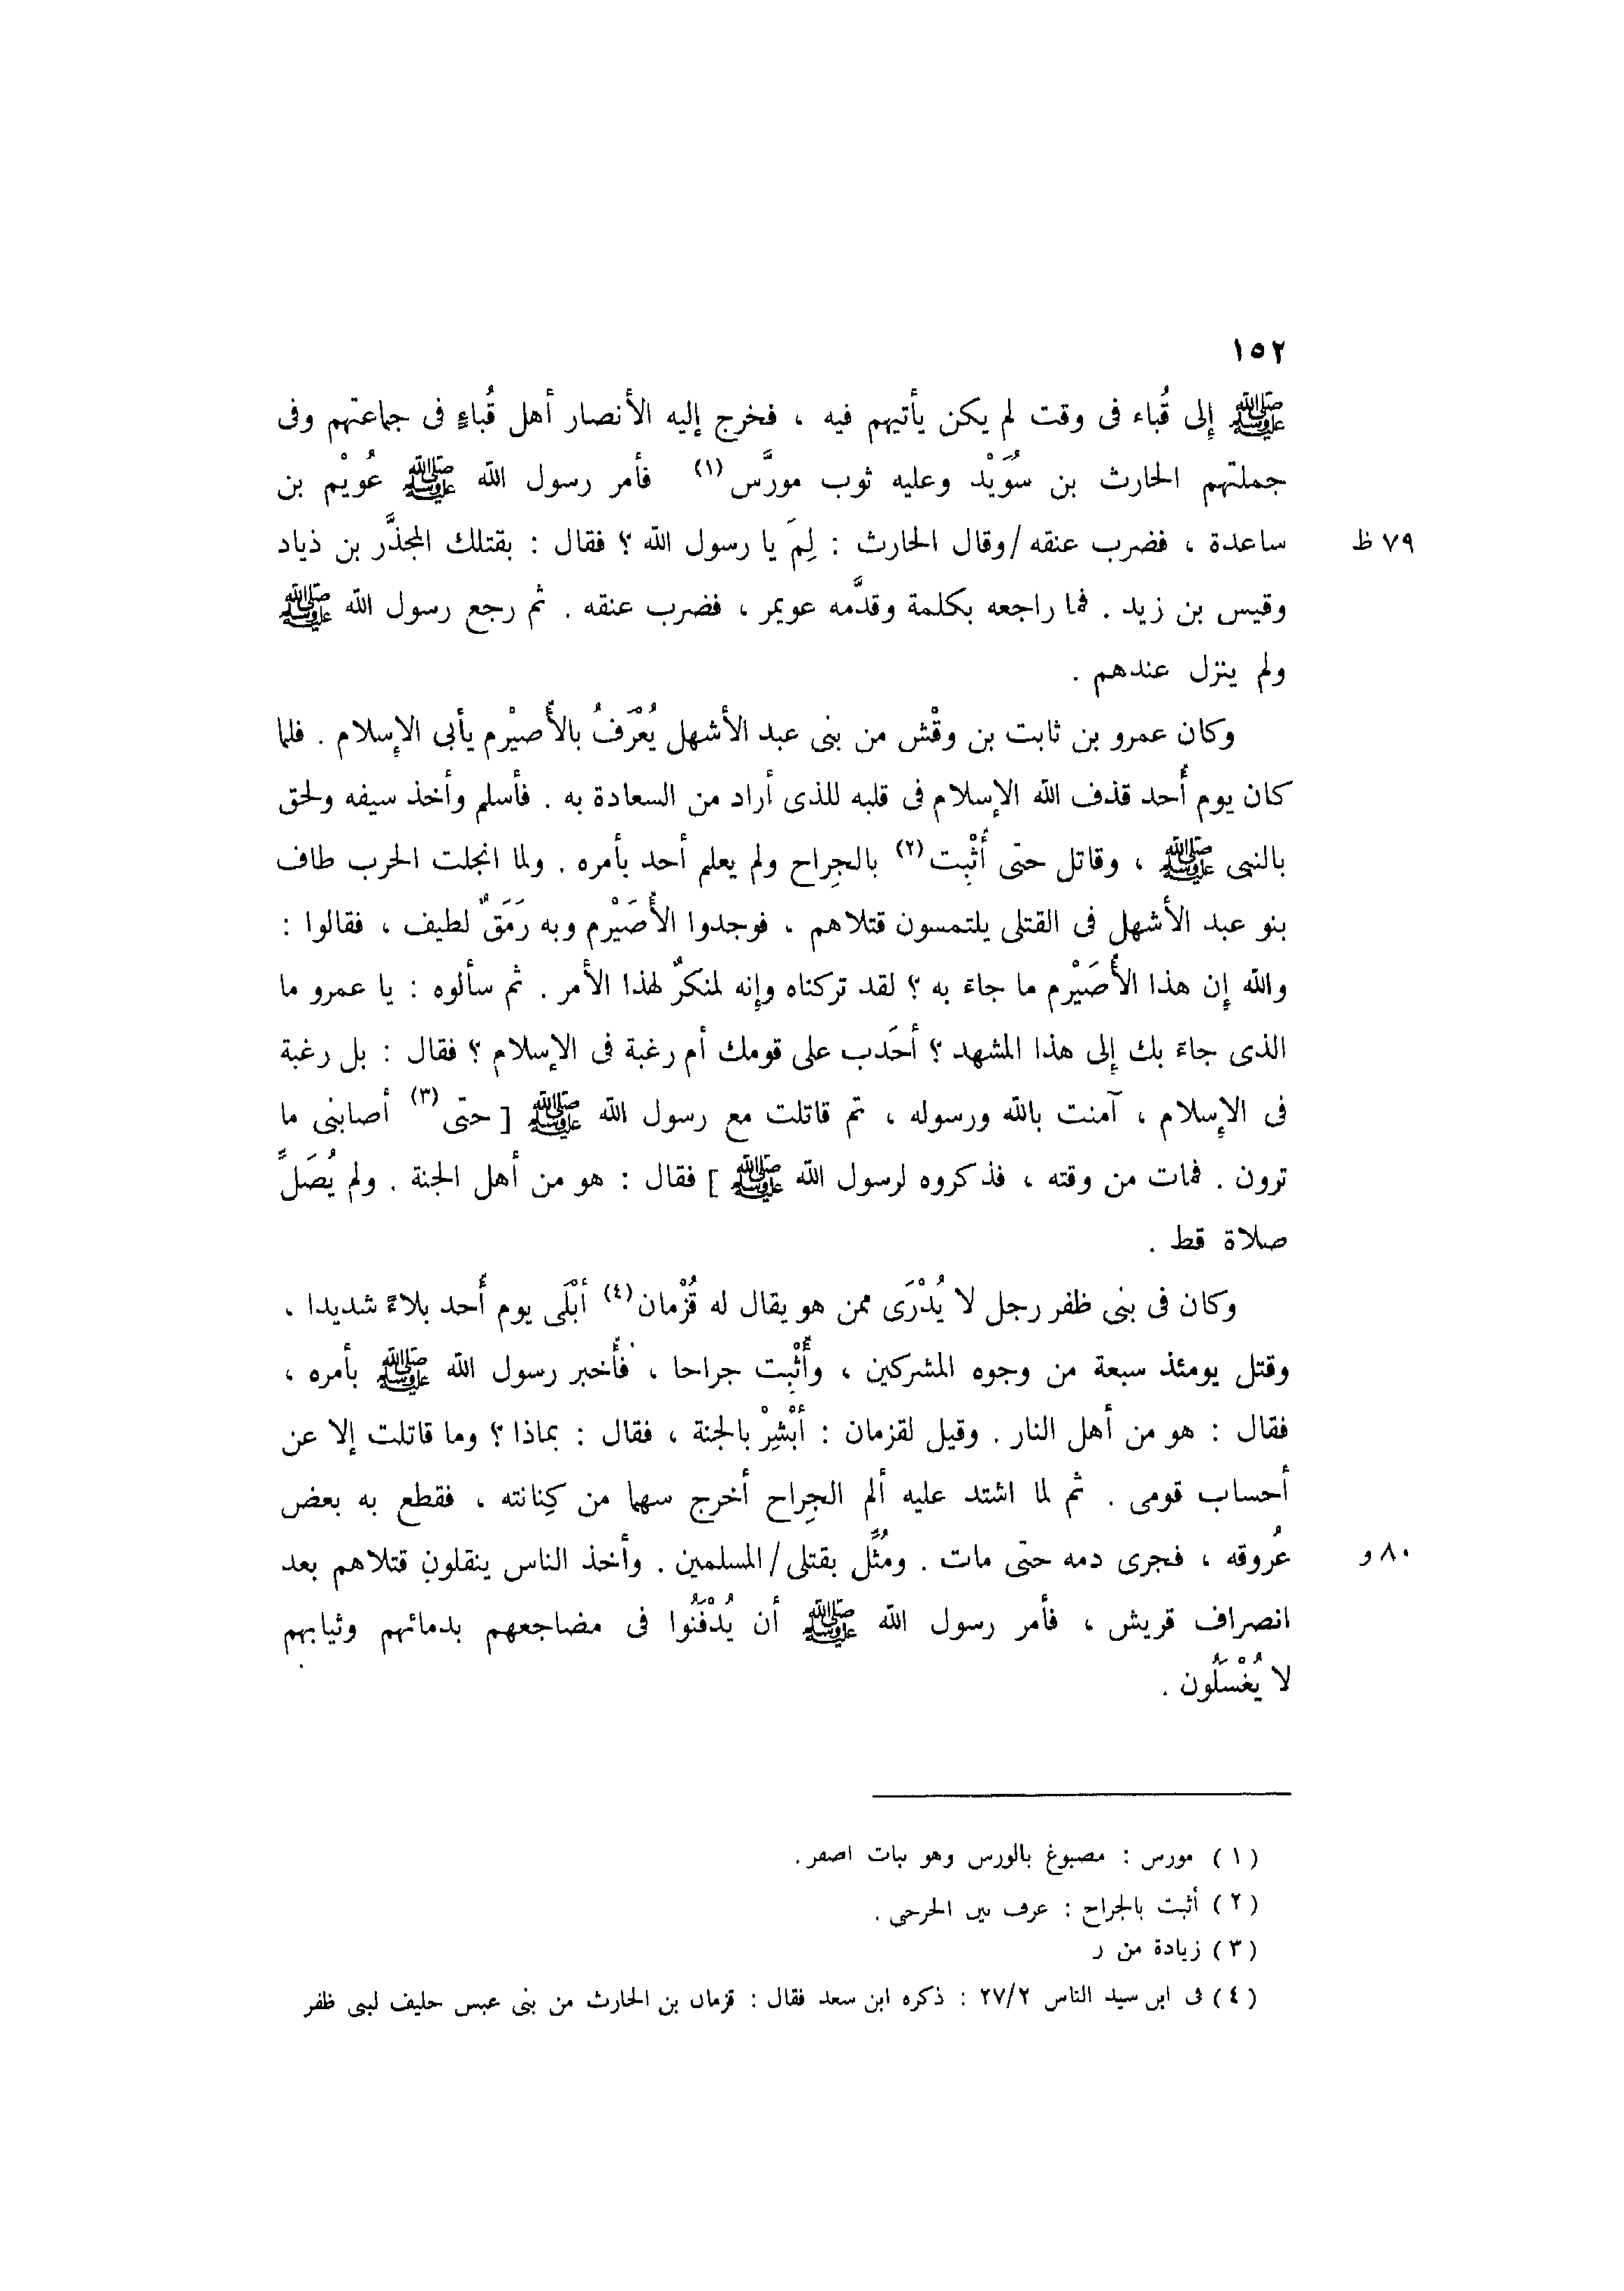 ١٥٢
ﷺ إِلى قُباء فى وقت لم يكن يأتيهم فيه ، فخرج إليه الأنصار أهل قُباءٍ فى جماعتهم وفى
جملتهم الحارث بن سُوَيْد وعليه ثوب مورَّس (١) فأمر رسول الله ﷺ عُويْم بن
ساعدة ، فضرب عنقه / وقال الحارث : لِمَ يا رسول الله ؟ فقال : بقتلك المجذَّر بن ذياد ٧٩ ظ
وقيس بن زيد . فما راجعه بكلمة وقدَّمه عويمر ، فضرب عنقه . ثم رجع رسول الله ﷺ
ولم ينزل عندهم .
وكان عمرو بن ثابت بن وقْش من بنى عبد الأشهل يُعْرَفُ بالأُصيْرم يأبى الإسلام . فلما
كان يوم أُحد قذف الله الإسلام فى قلبه للذى أراد من السعادة به . فأسلم وأخذ سيفه ولحق
بالنبى ﷺ ، وقاتل حتى أُثْبِت (٢) بالجِراح ولم يعلم أحد بأمره . ولما انجلت الحرب طاف
بنو عبد الأشهل فى القتلى يلتمسون قتلاهم ، فوجدوا الأُصَيْرم وبه رَمَقٌ لطيف ، فقالوا :
والله إِن هذا الأُصَيْرم ما جاءَ به ؟ لقد تركناه وإِنه لمنكرٌ لهذا الأمر . ثم سألوه : يا عمرو ما
الذى جاءَ بك إِلى هذا المشهد ؟ أحَدب على قومك أم رغبة فى الإسلام ؟ فقال : بل رغبة
فى الإِسلام ، آمنت بالله ورسوله ، ثم قاتلت مع رسول الله ﷺ [ حتى (٣) أصابنى ما
ترون . فمات من وقته ، فذكروه لرسول الله ﷺ ] فقال : هو من أهل الجنة . ولم يُصَلِّ
صلاة قط .
وكان فى بنى ظفر رجل لا يُدْرَى ممن هو يقال له قُزْمان (٤) أبْلَى يوم أُحد بلاءً شديدا ،
وقتل يومئذ سبعة من وجوه المشركين ، وأُثْبِت جراحا ، فأُخبر رسول الله ﷺ بأمره ،
فقال : هو من أهل النار . وقيل لقزمان : أبْشِرْ بالجنة ، فقال : بماذا ؟ وما قاتلت إلا عن
أحساب قومى . ثم لما اشتد عليه ألم الجِراح أخرج سهما من كِنانته ، فقطع به بعض
عُروقه ، فجرى دمه حتى مات . ومُثِّل بقتلى / المسلمين . وأخذ الناس ينقلون قتلاهم بعد ٨٠ و
انصراف قريش ، فأمر رسول الله ﷺ أن يُدْفَنُوا فى مضاجعهم بدمائهم وثيابهم
لا يُغْسَلُون .
( ١ ) مورس : مصبوغ بالورس وهو نبات اصفر .
( ٢ ) أثبت بالجراح : عرف بين الجرحى .
( ٣ ) زيادة من ر
( ٤ ) فى ابن سيد الناس ٢٧/٢ : ذكره ابن سعد فقال : قزمان بن الحارث من بنى عبس حليف لبنى ظفر